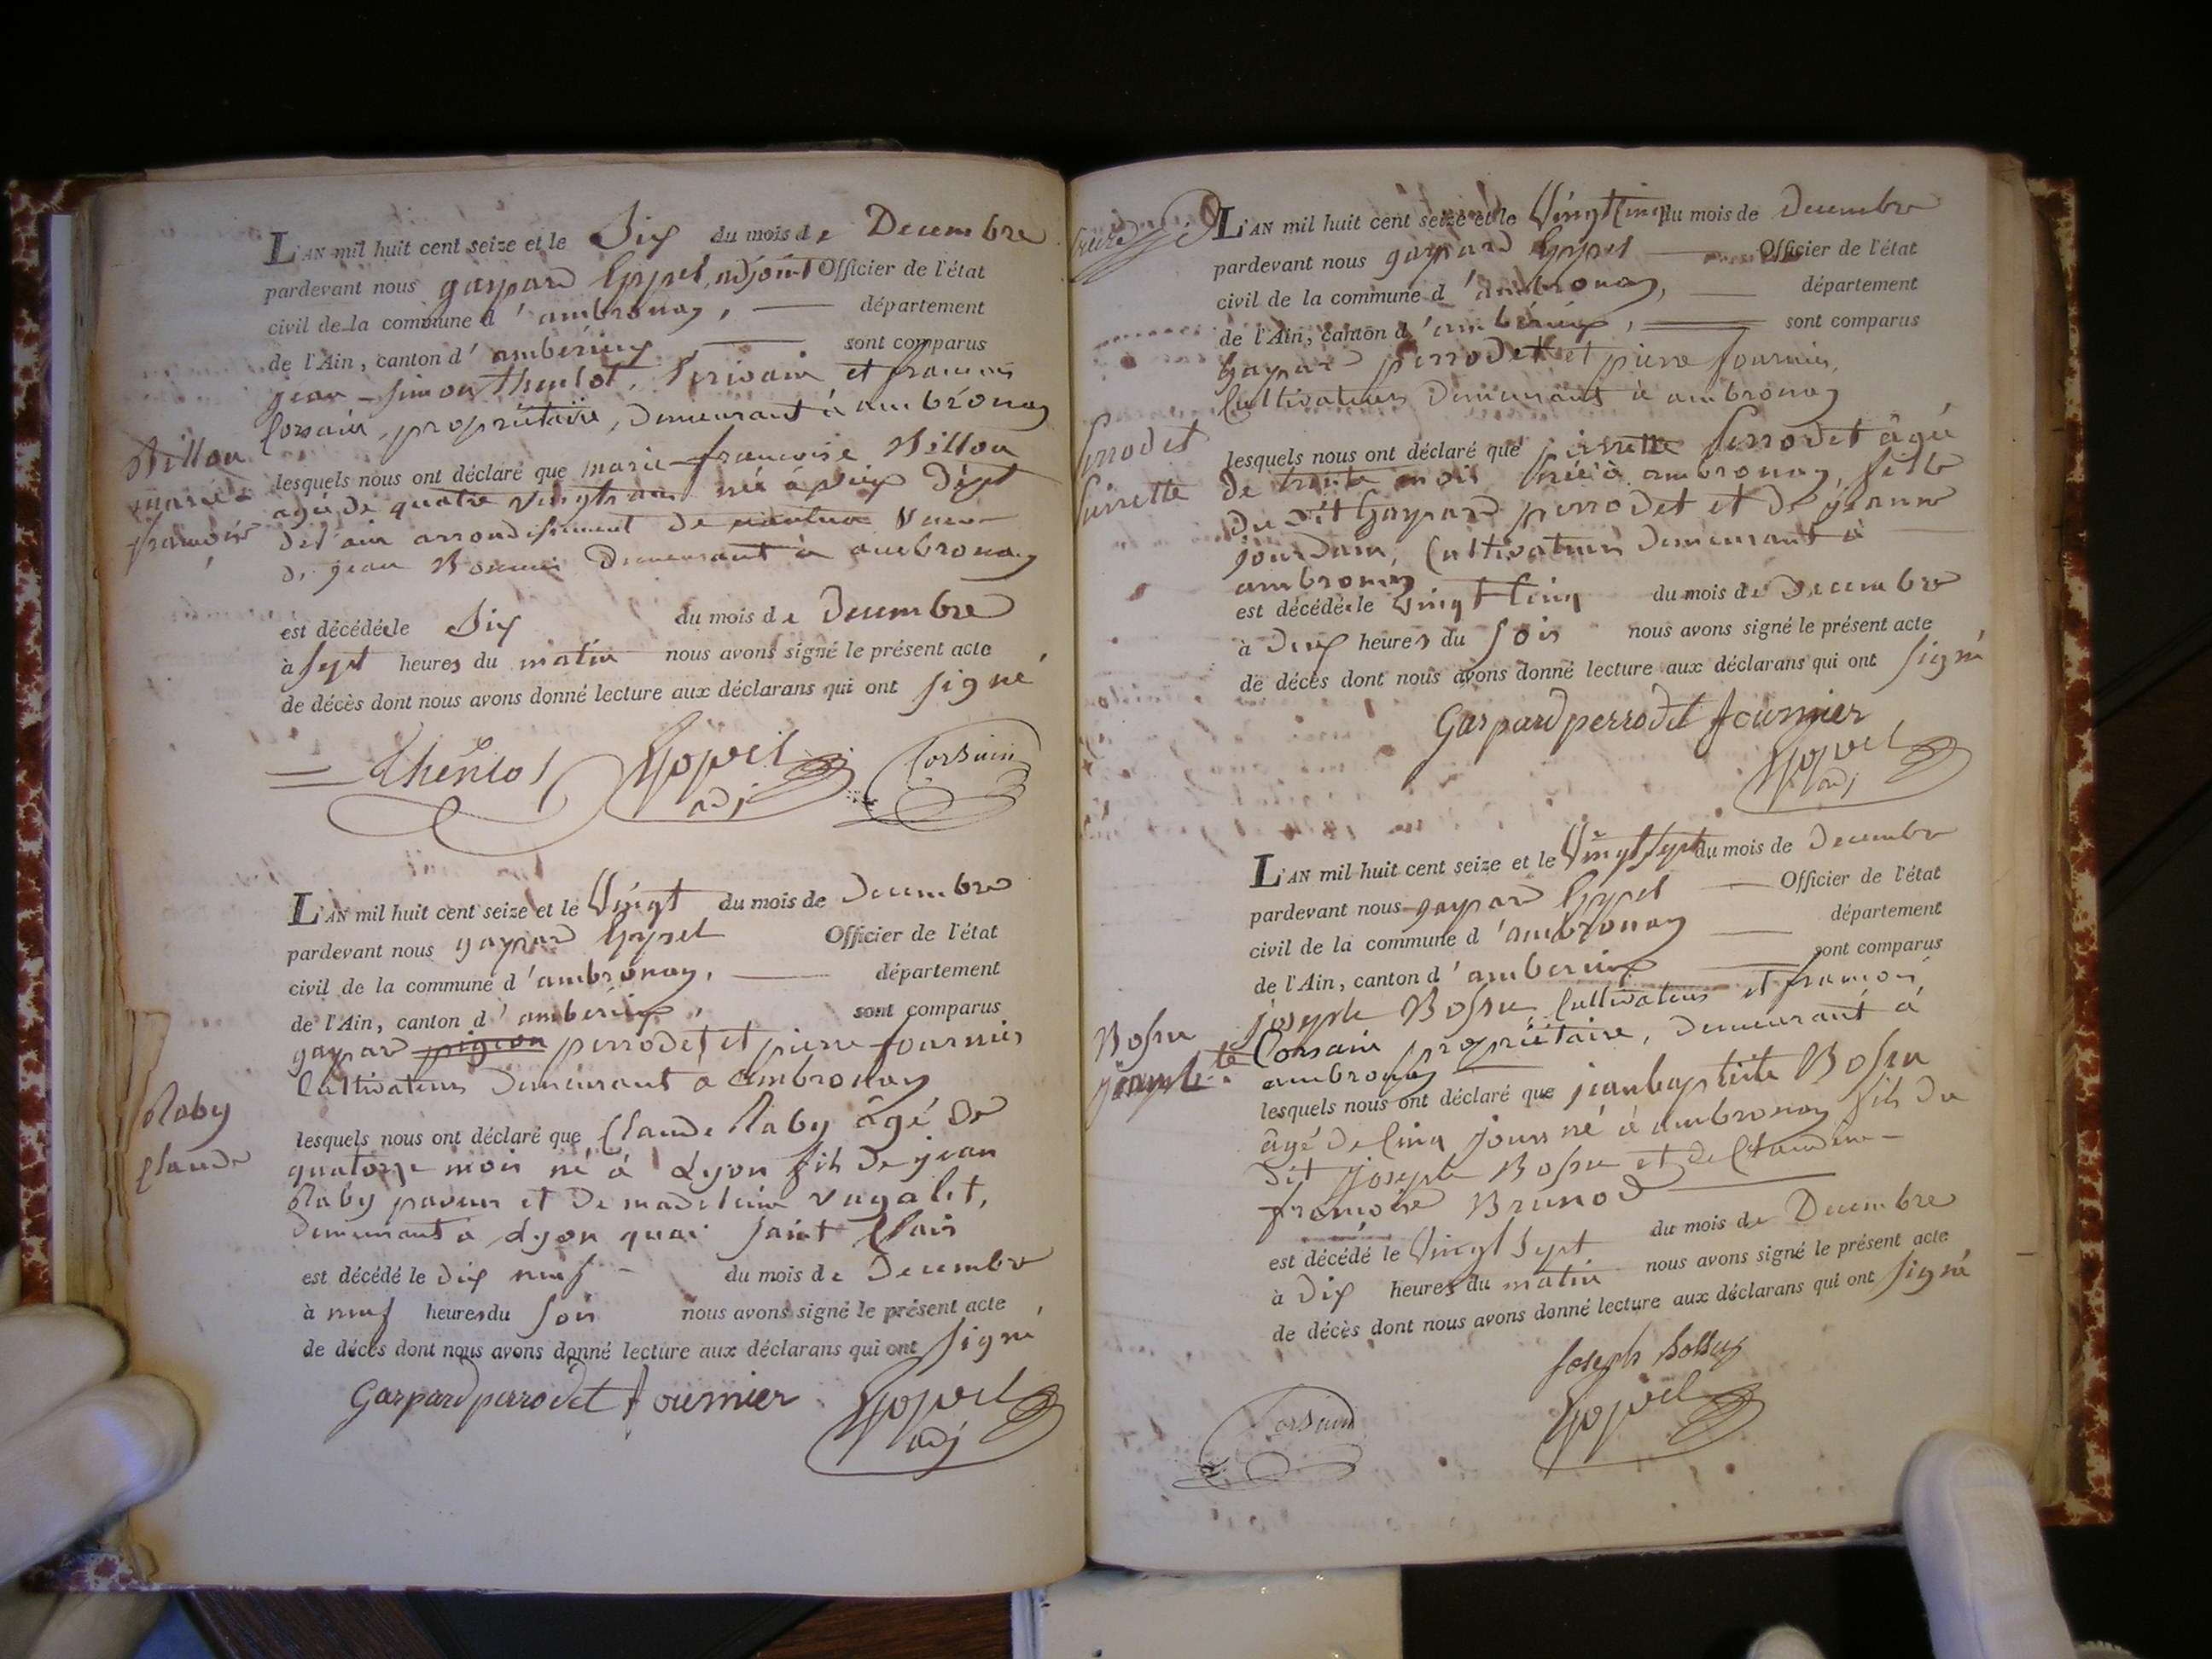 L'AN mil huit cent seize et le Dix du mois de Decembre
pardevant nous gaspard Goypel, adjoint Officier de l'état
civil de la commune d'ambronay, département
de l'Ain, canton d'ambérieux sont comparus
jean-simon Thenlot, Ecrivain et francois
Corsain, propriétaire, demeurant à ambronay
Billon
marie
francoise
lesquels nous ont déclaré que marie francoise Billon
agée de quatre vingts ans née à dépt
de l'ain arrondissement de
de jean demeurant à ambronay
est décédée le Dix du mois de Decembre
à sept heures du matin nous avons signé le présent acte
de décès dont nous avons donné lecture aux déclarans qui ont signé
Corsain
adj
L'AN mil huit cent seize et le Vingt du mois de Decembre
pardevant nous gaspard Goypel Officier de l'état
civil de la commune d'ambronay, département
de l'Ain, canton d'ambérieux, sont comparus
gaspard pigeon perrodet et pierre fournier
Cultivateurs demeurant a ambronay
Raby
Claude
lesquels nous ont déclaré que Claude Raby âgé de
quatorze mois né à Lyon fils de jean
Raby paveur et de madeleine vugalet,
demeurant à Lyon quai saint Clair
est décédé le dix neuf du mois de Decembre
à neuf heures du soir nous avons signé le présent acte
de décès dont nous avons donné lecture aux déclarans qui ont signé
Gaspard perrodet fournier
adj
L'AN mil huit cent seize et le Vingt Cinq du mois de Decembre
pardevant nous gaspard Goypel Officier de l'état
civil de la commune d'ambronay, département
de l'Ain, canton d'ambérieux, sont comparus
Gaspard perrodet et pierre fournier,
Cultivateurs demeurant à ambronay
perrodet
pierrette
lesquels nous ont déclaré que pierrette perrodet âgée
de trente mois née à ambronay, fille
du dit Gaspard perrodet et de jeanne
jourdain, Cultivateurs demeurant à
ambronay
est décédée le Vingt Cinq du mois de Decembre
à Deux heures du soir nous avons signé le présent acte
de décès dont nous avons donné lecture aux déclarans qui ont signé
Gaspard perrodet fournier
adj
L'AN mil huit cent seize et le Vingt sept du mois de Decembre
pardevant nous gaspard Goypel Officier de l'état
civil de la commune d'ambronay département
de l'Ain, canton d'amberieux sont comparus
joseph Bossu Cultivateur et francois
Corsain propriétaire, demeurant à
ambronay
Bossu
jean bte
lesquels nous ont déclaré que jean baptiste Bossu
âgé de Cinq jours né à ambronay fils du
dit joseph Bossu et de Claudine
francoise Brunod
est décédé le Vingt sept du mois de Decembre
à dix heures du matin nous avons signé le présent acte
de décès dont nous avons donné lecture aux déclarans qui ont signé
joseph bossu
Corsain